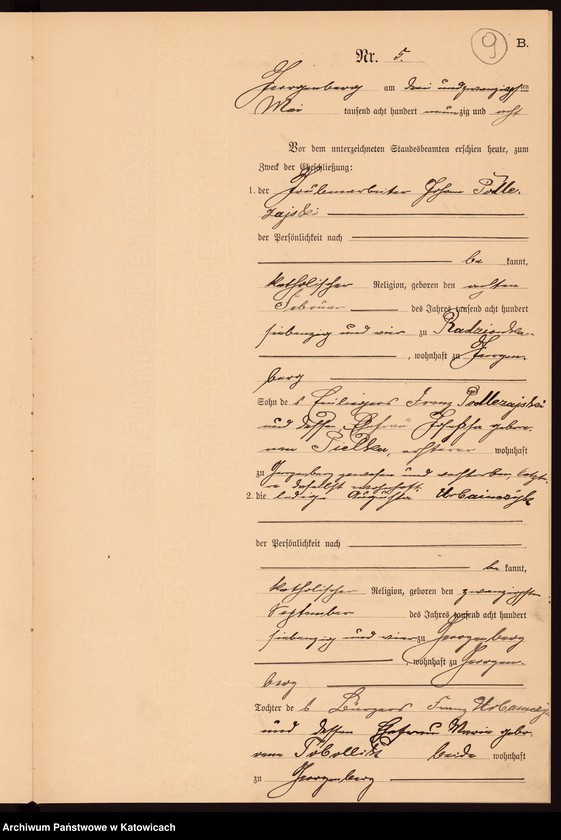 9
B.
Nr. 5.
Georgenberg am drei und zwanzigsten
Mai tausend acht hundert neunzig und acht
Vor dem unterzeichneten Standesbeamten erschien heute, zum
Zweck der Eheschließung:
1. der Grubenarbeiter Johann Podle-
zajski
der Persönlichkeit nach
be kannt,
katholischer Religion, geboren den achten
Februar des Jahres tausend acht hundert
siebenzig und vier zu
, wohnhaft zu Georgen-
berg
Sohn de s Franz Podlezajski
und dessen Ehefrau Josefa gebore-
nen Pielka, ersterer wohnhaft
zu Georgenberg gewesen und verstorben, letzte-
re daselbst wohnhaft
2. die ledige Augusta Urbainczyk
der Persönlichkeit nach
be kannt,
katholischer Religion, geboren den zwanzigsten
September des Jahres tausend acht hundert
siebenzig und vier zu Georgenberg
, wohnhaft zu Georgen-
berg
Tochter de s Bürgers Franz Urbainczyk
und dessen Ehefrau Marie gebo-
renen beide wohnhaft
zu Georgenberg
Archiwum Państwowe w Katowicach